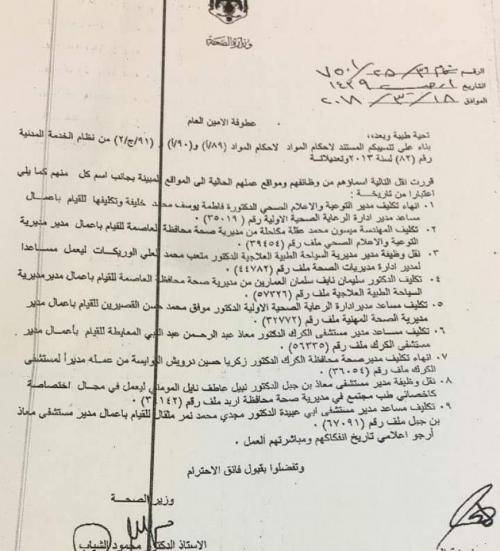 وزارة الصحة
الرقم
التاريخ ١٤٣٩
الموافق ٢٠١٨/٣/١٨
عطوفة الامين العام
تحية طيبة وبعد،،
بناء على تنسيبكم المستند لاحكام المواد لاحكام المواد (٨٩/أ) و(٩٠/أ) و (٩١/ج/٢) من نظام الخدمة المدنية
رقم (٨٢) لسنة ٢٠١٣ وتعديلاته
قررت نقل التالية اسماؤهم من وظائفهم ومواقع عملهم الحالية الى المواقع المبينة بجانب اسم كل منهم كما يلي
اعتبارا من تاريخة :
١. انهاء تكليف مدير التوعية والاعلام الصحي الدكتورة فاطمة يوسف محمد خليفة وتكليفها للقيام باعمال
مساعد مدير ادارة الرعاية الصحية الاولية رقم (٣٥٠١٩) .
٢. تكليف المهندسة ميسون محمد عقلة مكاحلة من مديرية صحة محافظة العاصمة للقيام باعمال مدير مديرية
التوعية والاعلام الصحي ملف رقم (٣٩٤٥٤) .
٣. نقل وظيفة مدير مديرية السياحة الطبية العلاجية الدكتور متعب محمد علي الوريكات ليعمل مساعدا
لمدير ادارة مديريات الصحة ملف رقم (٤٤٧٨٢) .
٤. تكليف الدكتور سليمان نايف سلمان العمارين من مديرية صحة محافظة العاصمة للقيام باعمال مدير مديرية
السياحة الطبية العلاجية ملف رقم (٥٧٣٢٦) .
٥. تكليف مساعد مدير ادارة الرعاية الصحية الاولية الدكتور موفق محمد حسن القصيرين للقيام باعمال مدير
مديرية الصحة المهنية ملف رقم (٣٢٧٧٢) .
٦. تكليف مساعد مدير مستشفى الكرك الدكتور معاذ عبد الرحمن عبد النبي المعايطة للقيام بأعمال مدير
مستشفى الكرك ملف رقم (٥٦٣٣٥) .
٧. انهاء تكليف مدير صحة محافظة الكرك الدكتور زكريا حسين درويش النوايسة من عمله مديراً لمستشفى
الكرك ملف رقم (٣٦٠٥٤) .
٨. نقل وظيفة مدير مستشفى معاذ بن جبل الدكتور نبيل عاطف نايل المومني ليعمل في مجال اختصاصة
كاخصائي طب مجتمع في مديرية صحة محافظة اربد ملف رقم
٩. تكليف مساعد مدير مستشفى ابي عبيدة الدكتور مجدي محمد نمر ملقال للقيام باعمال مدير مستشفى معاذ
بن جبل ملف رقم (٦٧٠٩١) .
أرجو اعلامي تاريخ انفكاكهم ومباشرتهم العمل .
وتفضلوا بقبول فائق الاحترام
وزير الصحة
الاستاذ الدكتور محمود الشياب